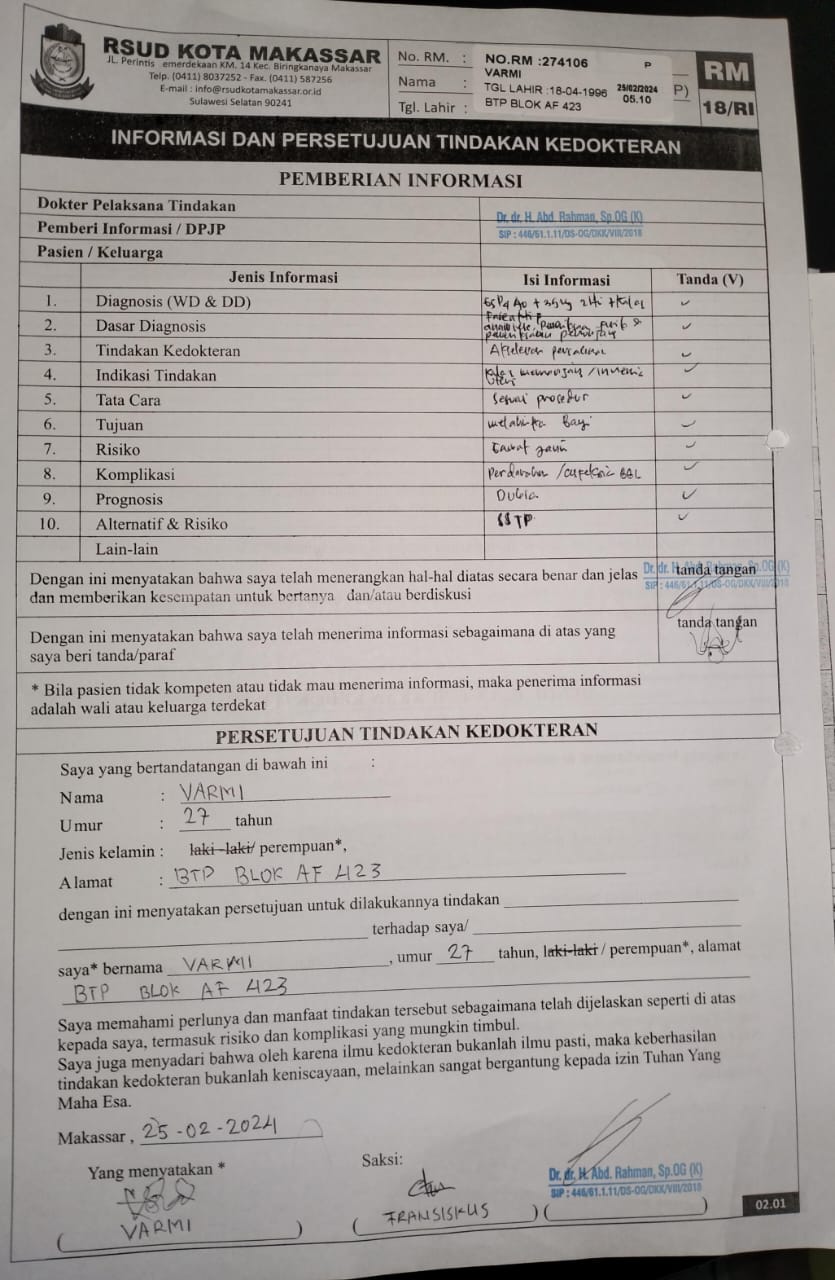 RSUD KOTA MAKASSAR
JL. Perintis emerdekaan KM. 14 Kec. Biringkanaya Makassar
Telp. (0411) 8037252 - Fax. (0411) 587256
E-mail : info@rsudkotamakassar.or.id
Sulawesi Selatan 90241
No. RM. : NO.RM :274106 P
Nama : VARMI
TGL LAHIR :18-04-1996 25/02/2024 P)
05.10
Tgl. Lahir : BTP BLOK AF 423
RM
18/RI
INFORMASI DAN PERSETUJUAN TINDAKAN KEDOKTERAN
PEMBERIAN INFORMASI
Dokter Pelaksana Tindakan
Pemberi Informasi / DPJP Dr. dr. H. Abd. Rahman, Sp.OG (K)
SIP : 446/61.1.11/DS-OG/DKK/VIII/2018
Pasien / Keluarga
Jenis Informasi Isi Informasi Tanda (V)
1. Diagnosis (WD & DD)
2. Dasar Diagnosis
3. Tindakan Kedokteran
4. Indikasi Tindakan
5. Tata Cara Sesuai procedur
6. Tujuan Bayi
7. Risiko
8. Komplikasi
9. Prognosis Dubia
10. Alternatif & Risiko SSTP
Lain-lain
Dengan ini menyatakan bahwa saya telah menerangkan hal-hal diatas secara benar dan jelas
dan memberikan kesempatan untuk bertanya dan/atau berdiskusi
tanda tangan
Dr. dr. H. Abd. Rahman, Sp.OG (K)
SIP : 446/61.1.11/DS-OG/DKK/VIII/2018
Dengan ini menyatakan bahwa saya telah menerima informasi sebagaimana di atas yang
saya beri tanda/paraf
tanda tangan
* Bila pasien tidak kompeten atau tidak mau menerima informasi, maka penerima informasi
adalah wali atau keluarga terdekat
PERSETUJUAN TINDAKAN KEDOKTERAN
Saya yang bertandatangan di bawah ini :
Nama : VARMI
Umur : 27 tahun
Jenis kelamin : laki -laki/ perempuan*,
Alamat : BTP BLOK AF 423
dengan ini menyatakan persetujuan untuk dilakukannya tindakan
terhadap saya/
saya* bernama VARMI , umur 27 tahun, laki-laki / perempuan*, alamat
BTP BLOK AF 423
Saya memahami perlunya dan manfaat tindakan tersebut sebagaimana telah dijelaskan seperti di atas
kepada saya, termasuk risiko dan komplikasi yang mungkin timbul.
Saya juga menyadari bahwa oleh karena ilmu kedokteran bukanlah ilmu pasti, maka keberhasilan
tindakan kedokteran bukanlah keniscayaan, melainkan sangat bergantung kepada izin Tuhan Yang
Maha Esa.
Makassar , 25-02-2024
Yang menyatakan * Saksi:
Dr. dr. H. Abd. Rahman, Sp.OG (K)
SIP : 446/61.1.11/DS-OG/DKK/VIII/2018
( VARMI ) ( FRANSISKUS ) ( )
02.01